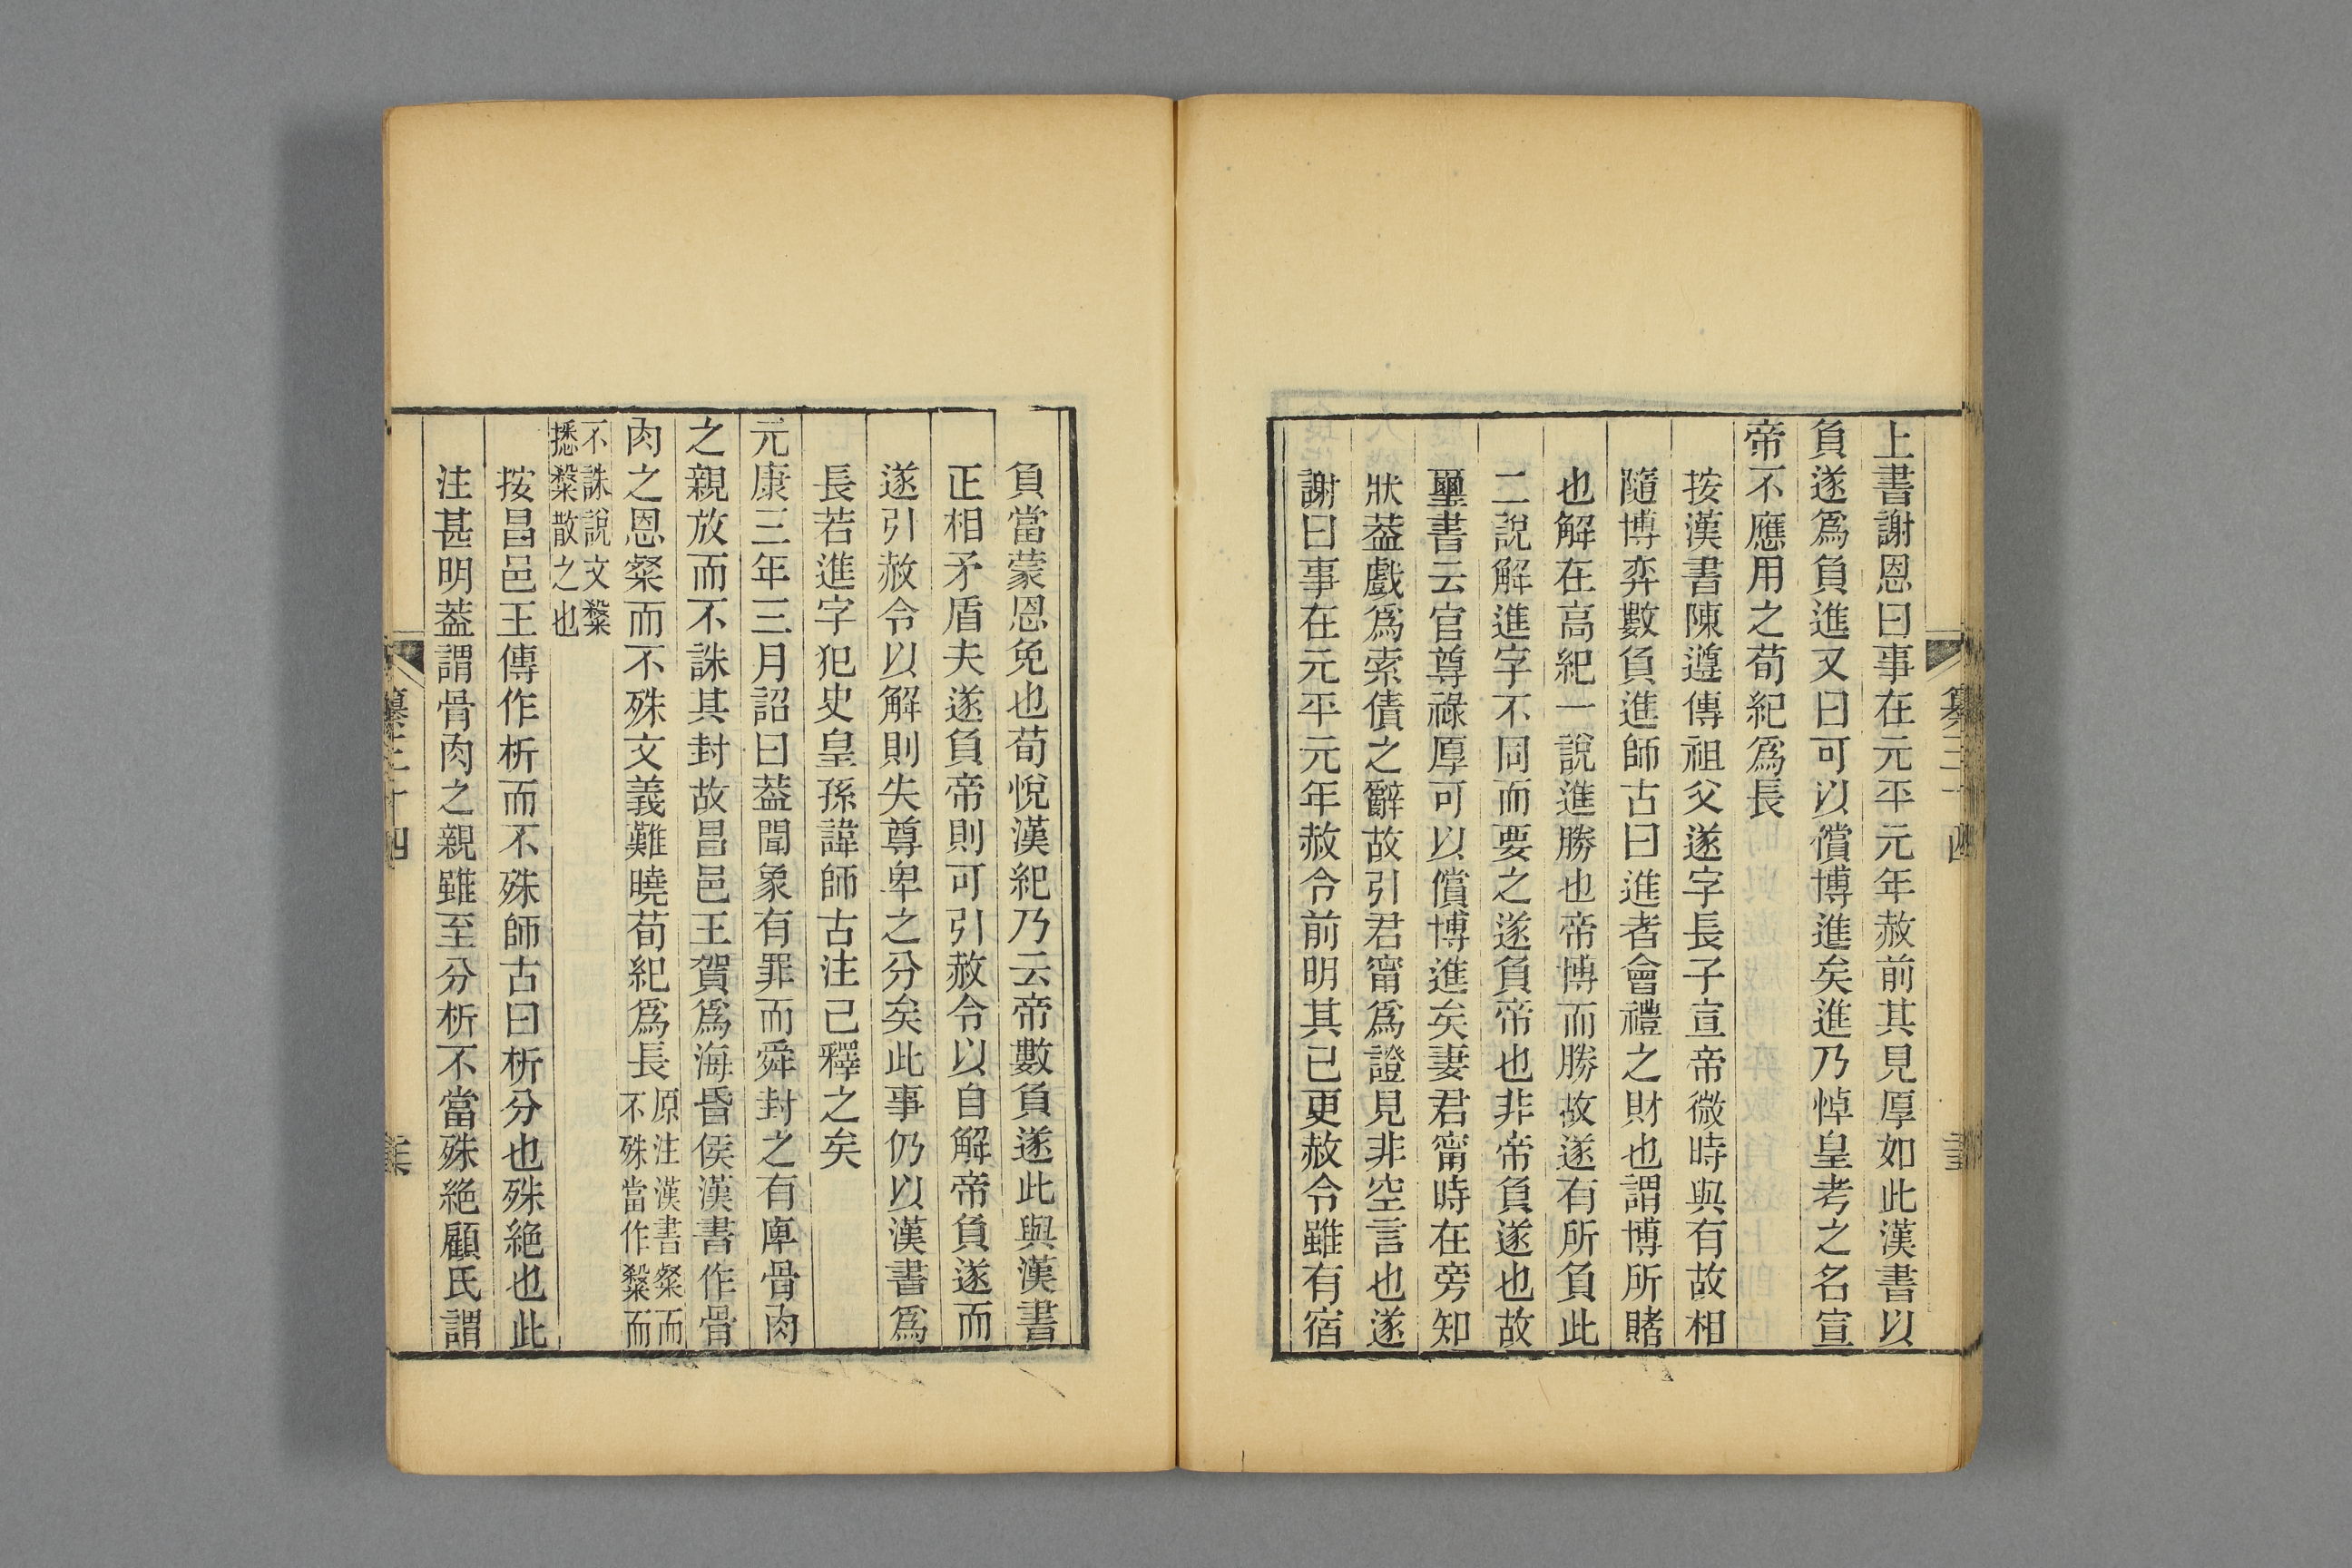 上書謝恩曰事在元平元年赦前其見厚如此漢書以
負遂爲負進又曰可以償博進矣進乃悼皇考之名宣
帝不應用之荀紀爲長
按漢書陳遵傳祖父遂字長子宣帝微時與有故相
隨博弈數負進師古曰進者會禮之財也謂博所賭
也解在高紀一說進勝也帝博而勝故遂有所負此
二說解進字不同而要之遂負帝也非帝負遂也故
璽書云官尊祿厚可以償博進矣妻君甯時在旁知
狀葢戲爲索債之辭故引君甯爲證見非空言也遂
謝曰事在元平元年赦令前明其已更赦令雖有宿
負當蒙恩免也荀悅漢紀乃云帝數負遂此與漢書
正相矛盾夫遂負帝則可引赦令以自解帝負遂而
遂引赦令以解則失尊卑之分矣此事仍以漢書爲
長若進字犯史皇孫諱師古注已釋之矣
元康三年三月詔曰葢聞象有罪而舜封之有庳骨肉
之親放而不誅其封故昌邑王賀爲海昏侯漢書作骨
肉之恩粲而不殊文義難曉荀紀爲長原注漢書粲而
不殊當作䊝而
不誅說文䊝
䊝散之也
按昌邑王傳作析而不殊師古曰析分也殊絶也此
注甚明葢謂骨肉之親雖至分析不當殊絶顧氏謂